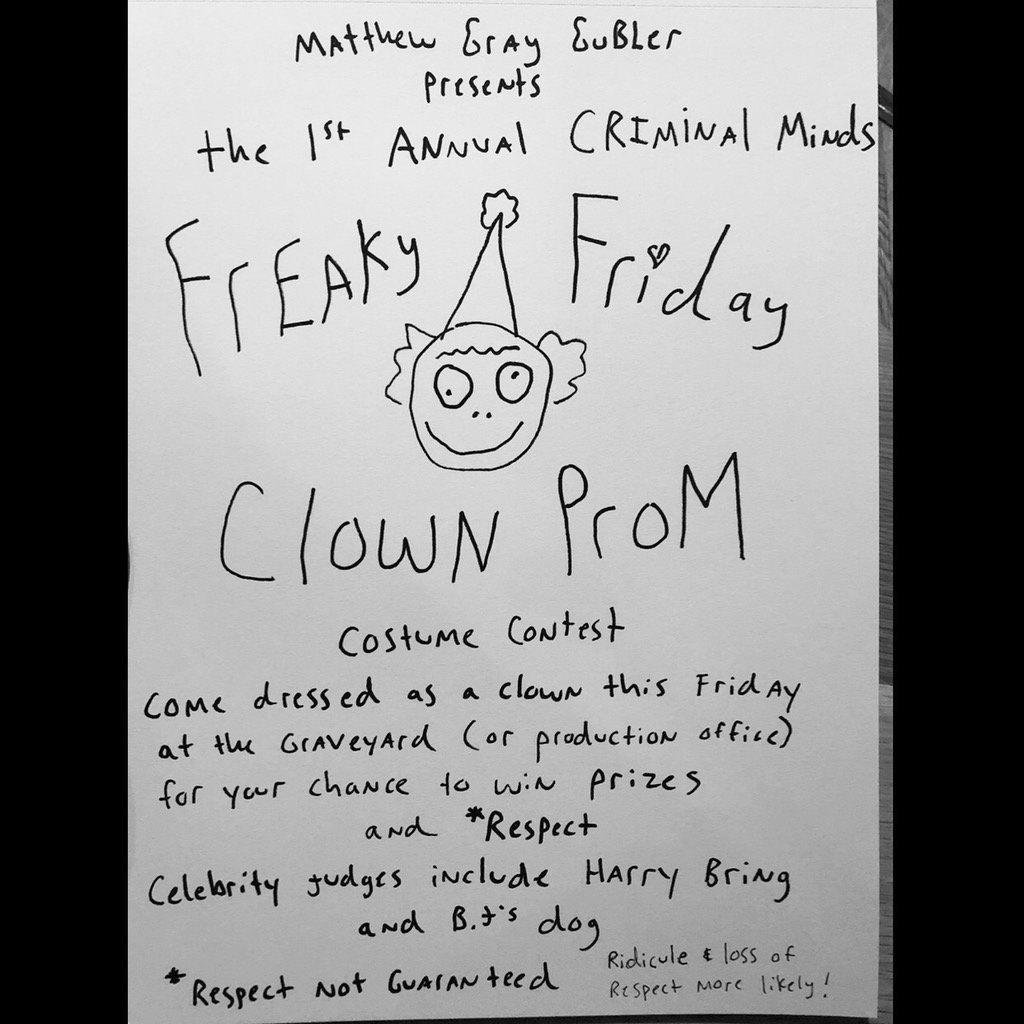 Matthew Gray Gubler
presents
the 1st Annual CRIMINAL Minds
Freaky Friday
Clown Prom
Costume Contest
come dressed as a clown this Friday
at the Graveyard (or production office)
for your chance to win prizes
and *Respect
Celebrity judges include Harry Bring
and B.J's dog
*Respect not Guaranteed
Ridicule & loss of
Respect more likely!